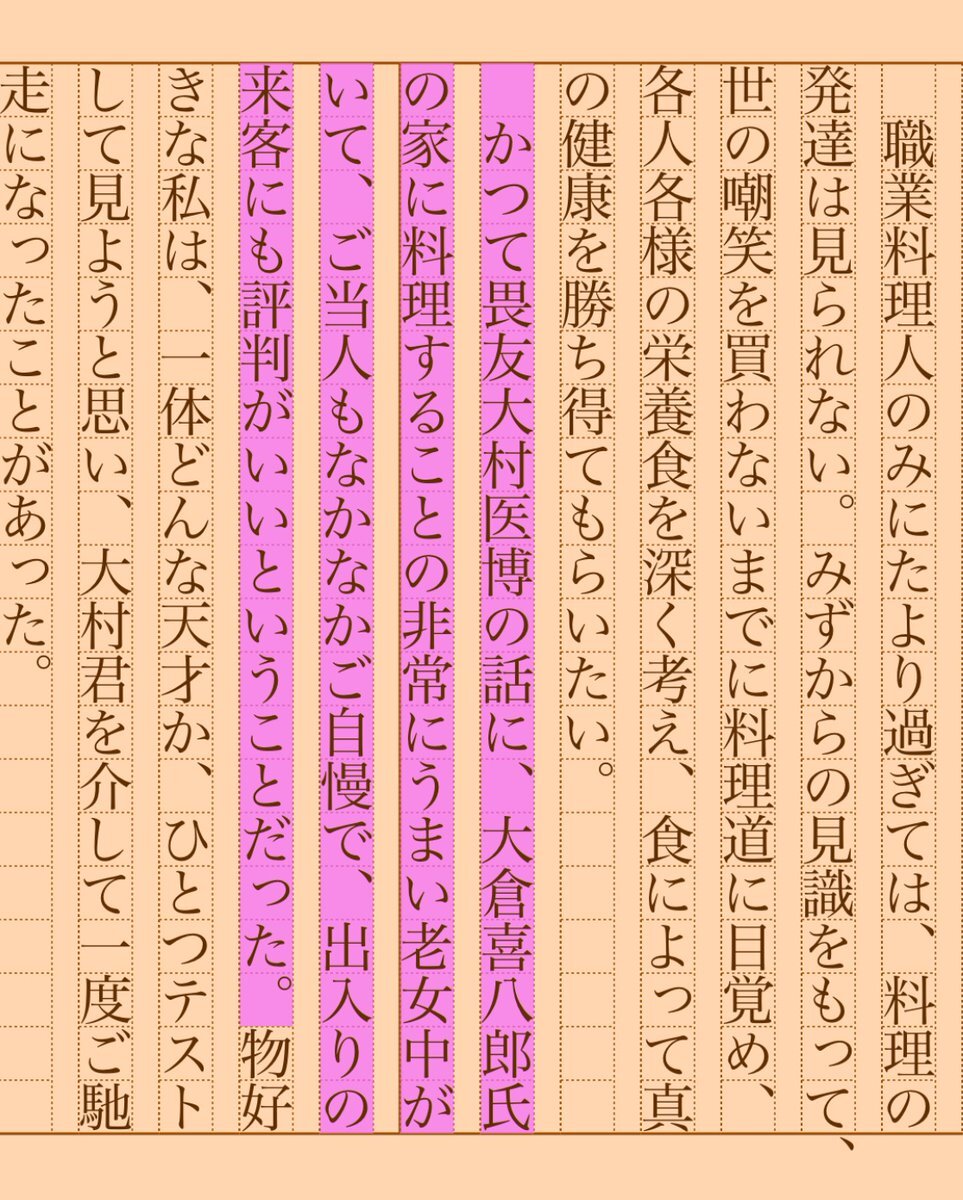 職業料理人のみにたより過ぎては、料理の
発達は見られない。みずからの見識をもって、
世の嘲笑を買わないまでに料理道に目覚め、
各人各様の栄養食を深く考え、食によって真
の健康を勝ち得てもらいたい。
　かつて畏友大村医博の話に、大倉喜八郎氏
の家に料理することの非常にうまい老女中が
いて、ご当人もなかなかご自慢で、出入りの
来客にも評判がいいということだった。物好
きな私は、一体どんな天才か、ひとつテスト
して見ようと思い、大村君を介して一度ご馳
走になったことがあった。